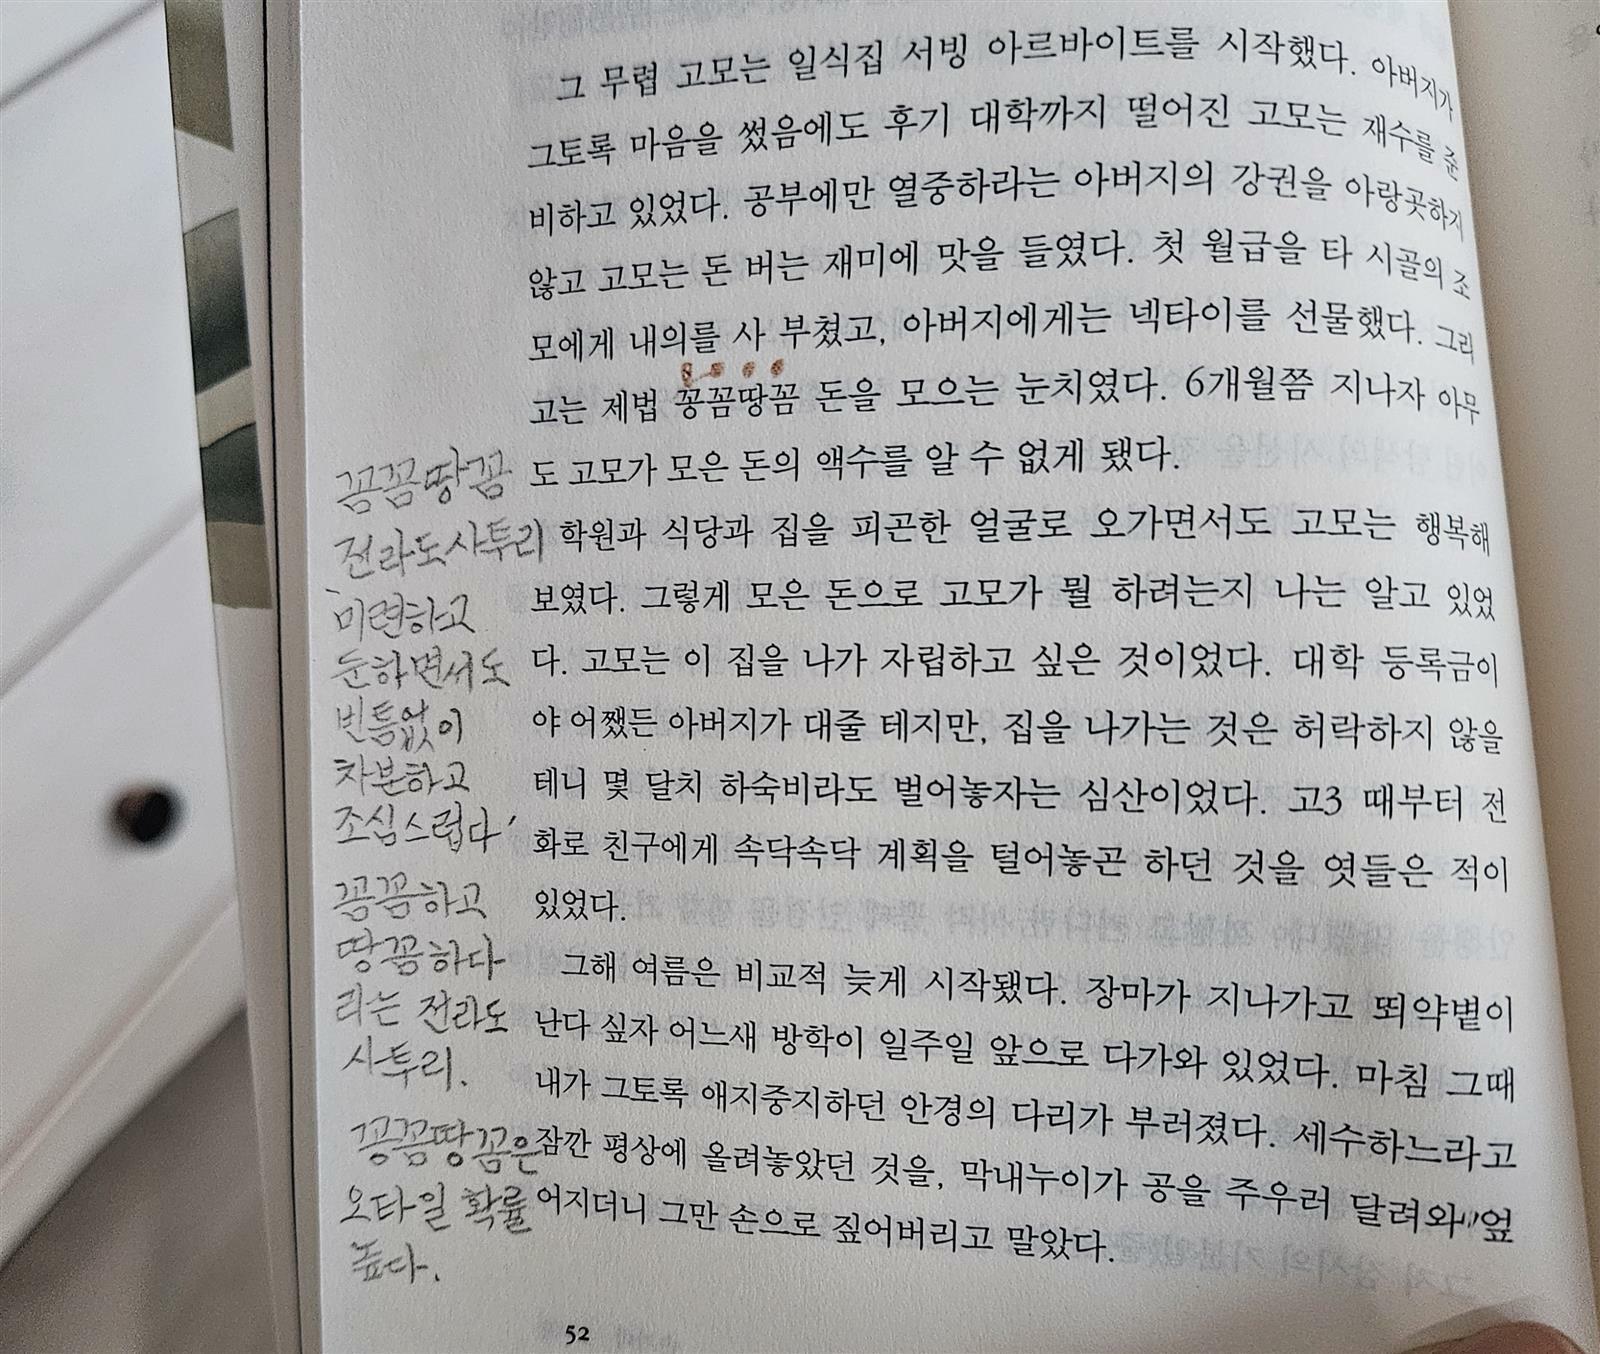 그 무렵 고모는 일식집 서빙 아르바이트를 시작했다. 아버지가
그토록 마음을 썼음에도 후기 대학까지 떨어진 고모는 재수를 준
비하고 있었다. 공부에만 열중하라는 아버지의 강권을 아랑곳하지
않고 고모는 돈 버는 재미에 맛을 들였다. 첫 월급을 타 시골의 조
모에게 내의를 사 부쳤고, 아버지에게는 넥타이를 선물했다. 그리
고는 제법 꽁꼼땅꼼 돈을 모으는 눈치였다. 6개월쯤 지나자 아무
도 고모가 모은 돈의 액수를 알 수 없게 됐다.
학원과 식당과 집을 피곤한 얼굴로 오가면서도 고모는 행복해
보였다. 그렇게 모은 돈으로 고모가 뭘 하려는지 나는 알고 있었
다. 고모는 이 집을 나가 자립하고 싶은 것이었다. 대학 등록금이
야 어쨌든 아버지가 대줄 테지만, 집을 나가는 것은 허락하지 않을
테니 몇 달치 하숙비라도 벌어놓자는 심산이었다. 고3 때부터 전
화로 친구에게 속닥속닥 계획을 털어놓곤 하던 것을 엿들은 적이
있었다.
그해 여름은 비교적 늦게 시작됐다. 장마가 지나가고 뙤약볕이
난다 싶자 어느새 방학이 일주일 앞으로 다가와 있었다. 마침 그때
내가 그토록 애지중지하던 안경의 다리가 부러졌다. 세수하느라고
잠깐 평상에 올려놓았던 것을, 막내누이가 공을 주우러 달려와 엎
어지더니 그만 손으로 짚어버리고 말았다.
52
꼼꼼땅꼼
전라도사투리
'미련하고
둔하면서도
빈틈없이
차분하고
조심스럽다'
꼼꼼하고
땅꼼하다
라는 전라도
사투리.
꽁꼼땅꼼은
오타일 확률
높다.